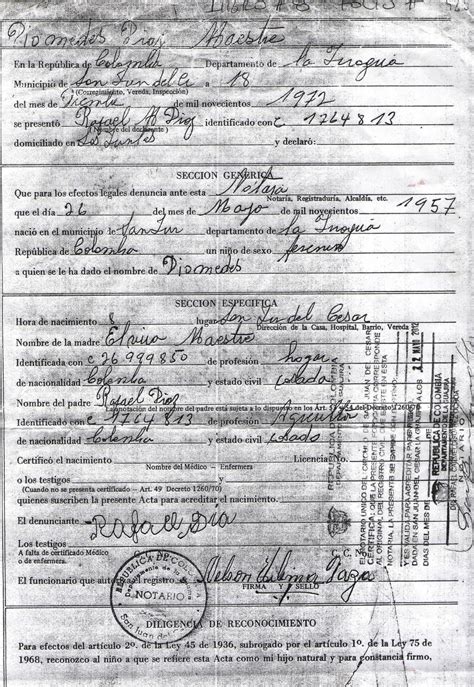 LIBRO # 13 - FOLIO #
Diomedes Diaz Maestre
En la República de Colombia Departamento de la Guajira
Municipio de San Juan del C. a 18
(Corregimiento, Vereda, Inspección)
del mes de de mil novecientos 1972
se presentó Rafael M Diaz identificado con c 1764813
(Nombre del declarante)
domiciliado en y declaró:
SECCION GENERICA
Que para los efectos legales denuncia ante esta Notaria
Notaría, Registraduría, Alcaldía, etc.
que el día 26 del mes de Mayo de mil novecientos 1957
nació en el municipio de San Jun departamento de la Guajira
República de Colombia un niño de sexo
a quien se le ha dado el nombre de Diomedes
SECCION ESPECIFICA
Hora de nacimiento 8 lugar San Jun del Cesar
Dirección de la Casa, Hospital, Barrio, Vereda
Nombre de la madre Elvira Maestre
Identificado con c 26999850 de profesión hogar
de nacionalidad Colombia y estado civil casada
Nombre del padre Rafael Diaz
La anotación del nombre del padre esta sujeta a lo dispuesto en los Art. 53 y 54 del Decreto 1260/70
Identificado con c 1764813 de profesión Agricultor
de nacionalidad Colombia y estado civil casado
Certificó el nacimiento Licencia No.
Nombre del Médico - Enfermera
o los testigos
(Cuando no se presenta certificado - Art. 49 Decreto 1260/70)
quienes suscriben la presente Acta para acreditar el nacimiento.
El denunciante Rafael Dia
Los testigos
A falta de certificado Médico
o de enfermera. C. C. N
El funcionario que autoriza el registro Nelson
FIRMA Y SELLO
REPUBLICA DE COLOMBIA
NOTARIO
San Juan del
DILIGENCIA DE RECONOCIMIENTO
Para efectos del artículo 2º. de la Ley 45 de 1936, subrogado por el artículo 1º. de la Ley 75 de
1968, reconozco al niño a que se refiere esta Acta como mi hijo natural y para constancia firmo,
EL NOTARIO UNICO DEL CIRCULO DE SAN JUAN DEL CESAR
CERTIFICA: QUE LA PRESENTE FOTOCOPIA CORRESPONDE
AL ORIGINAL DEL REGISTRO CIVIL QUE REPOSA EN ESTA
NOTARIA, LA PRESENTE SE EXPIDE
Y ES VALIDA PARA
DADA EN SAN JUAN DEL CESAR LA GUAJIRA A LOS
DIAS DEL MES DE
22 MAR 2012
REPUBLICA DE COLOMBIA
DEPARTAMENTO DE LA GUAJIRA
NOTARIO